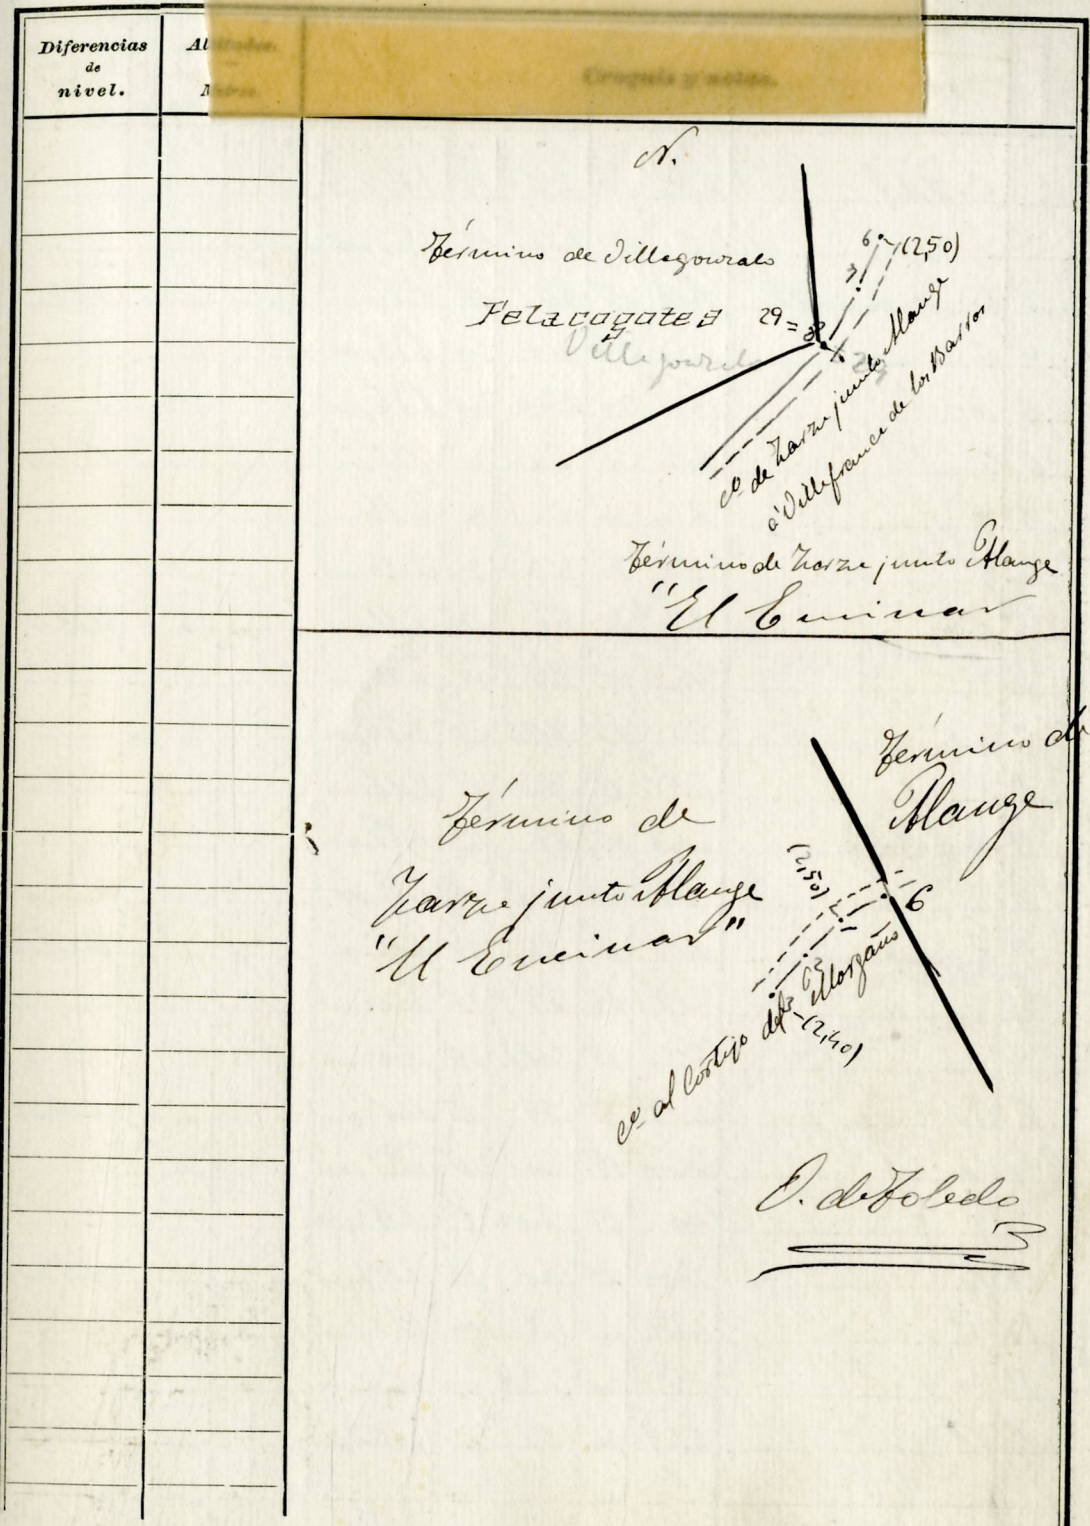 Diferencias
de
nivel.
Altitudes.
Metros.
Croquis y notas.
N.
Término de Villagonzalo
Pelacogotes
Villagonzalo
29=
6
(2,50)
cº de Zarza junto Alange
á Villafranca de los Barros
Término de Zarza junto Alange
"El Encinar
Término de
Alange
Término de
Zarza junto Alange
"El Encinar"
(2,50)
6
cº al Cortijo del Morgaño
(2,40)
O. de Toledo